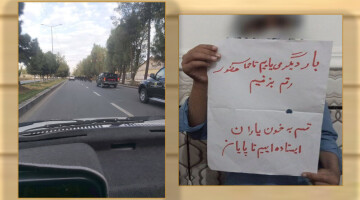 بار دیگری بیاییم
رقم بزنیم
قسم به خون یاران
ایستاده ایم تا پایان